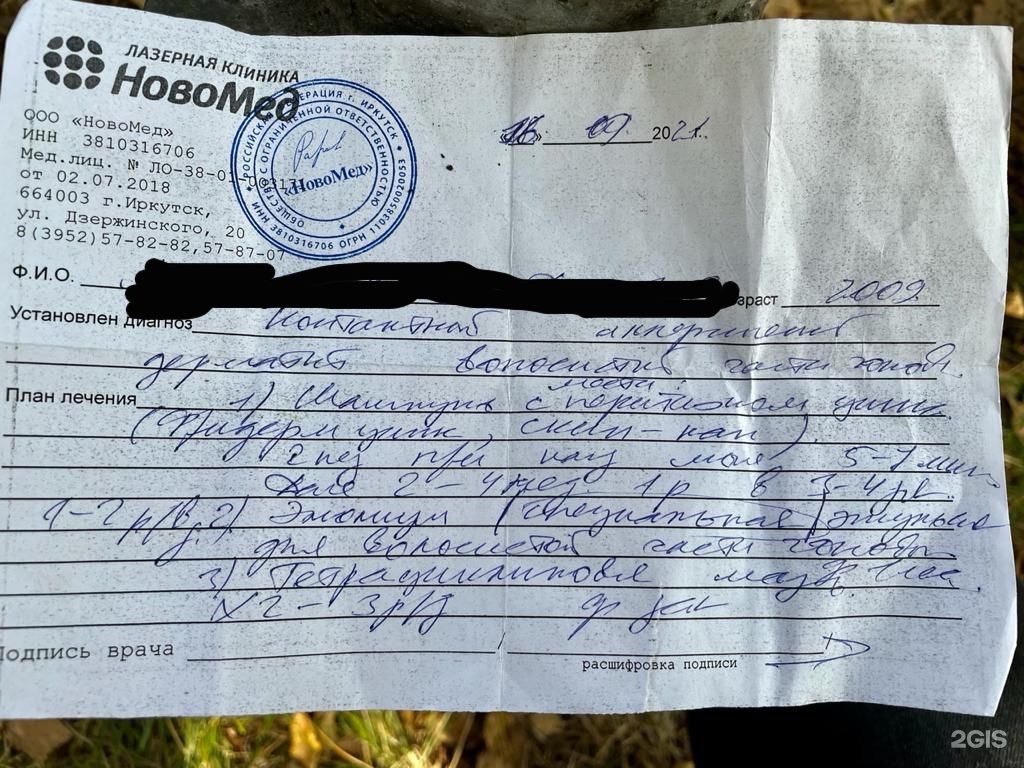 ЛАЗЕРНАЯ КЛИНИКА
НовоМед
ООО «НовоМед»
ИНН 3810316706
Мед.лиц. № ЛО-38-01-
от 02.07.2018
664003 г.Иркутск,
ул. Дзержинского, 20
8(3952)57-82-82,57-87-07
РОССИЙСКАЯ ФЕДЕРАЦИЯ г. ИРКУТСК
ОБЩЕСТВО С ОГРАНИЧЕННОЙ ОТВЕТСТВЕННОСТЬЮ
«НовоМед»
ИНН 3810316706 ОГРН 1103850020053
09 2021.
Ф.И.О. возраст 2009
Установлен диагноз Контактный аллергический
дерматит волосистой части головы
План лечения 1) Шампунь с пиритионом цинка
цинк, Скин-кап).
5-7 мин.
Далее 2-4 нед. 1р в 3-4 дн.
1-2 р/д 2) Эмолиум (специальная) эмульсия
для волосистой части головы
3) Тетрациклиновая мазь
x 2-3 р/д
Подпись врача
расшифровка подписи
2GIS